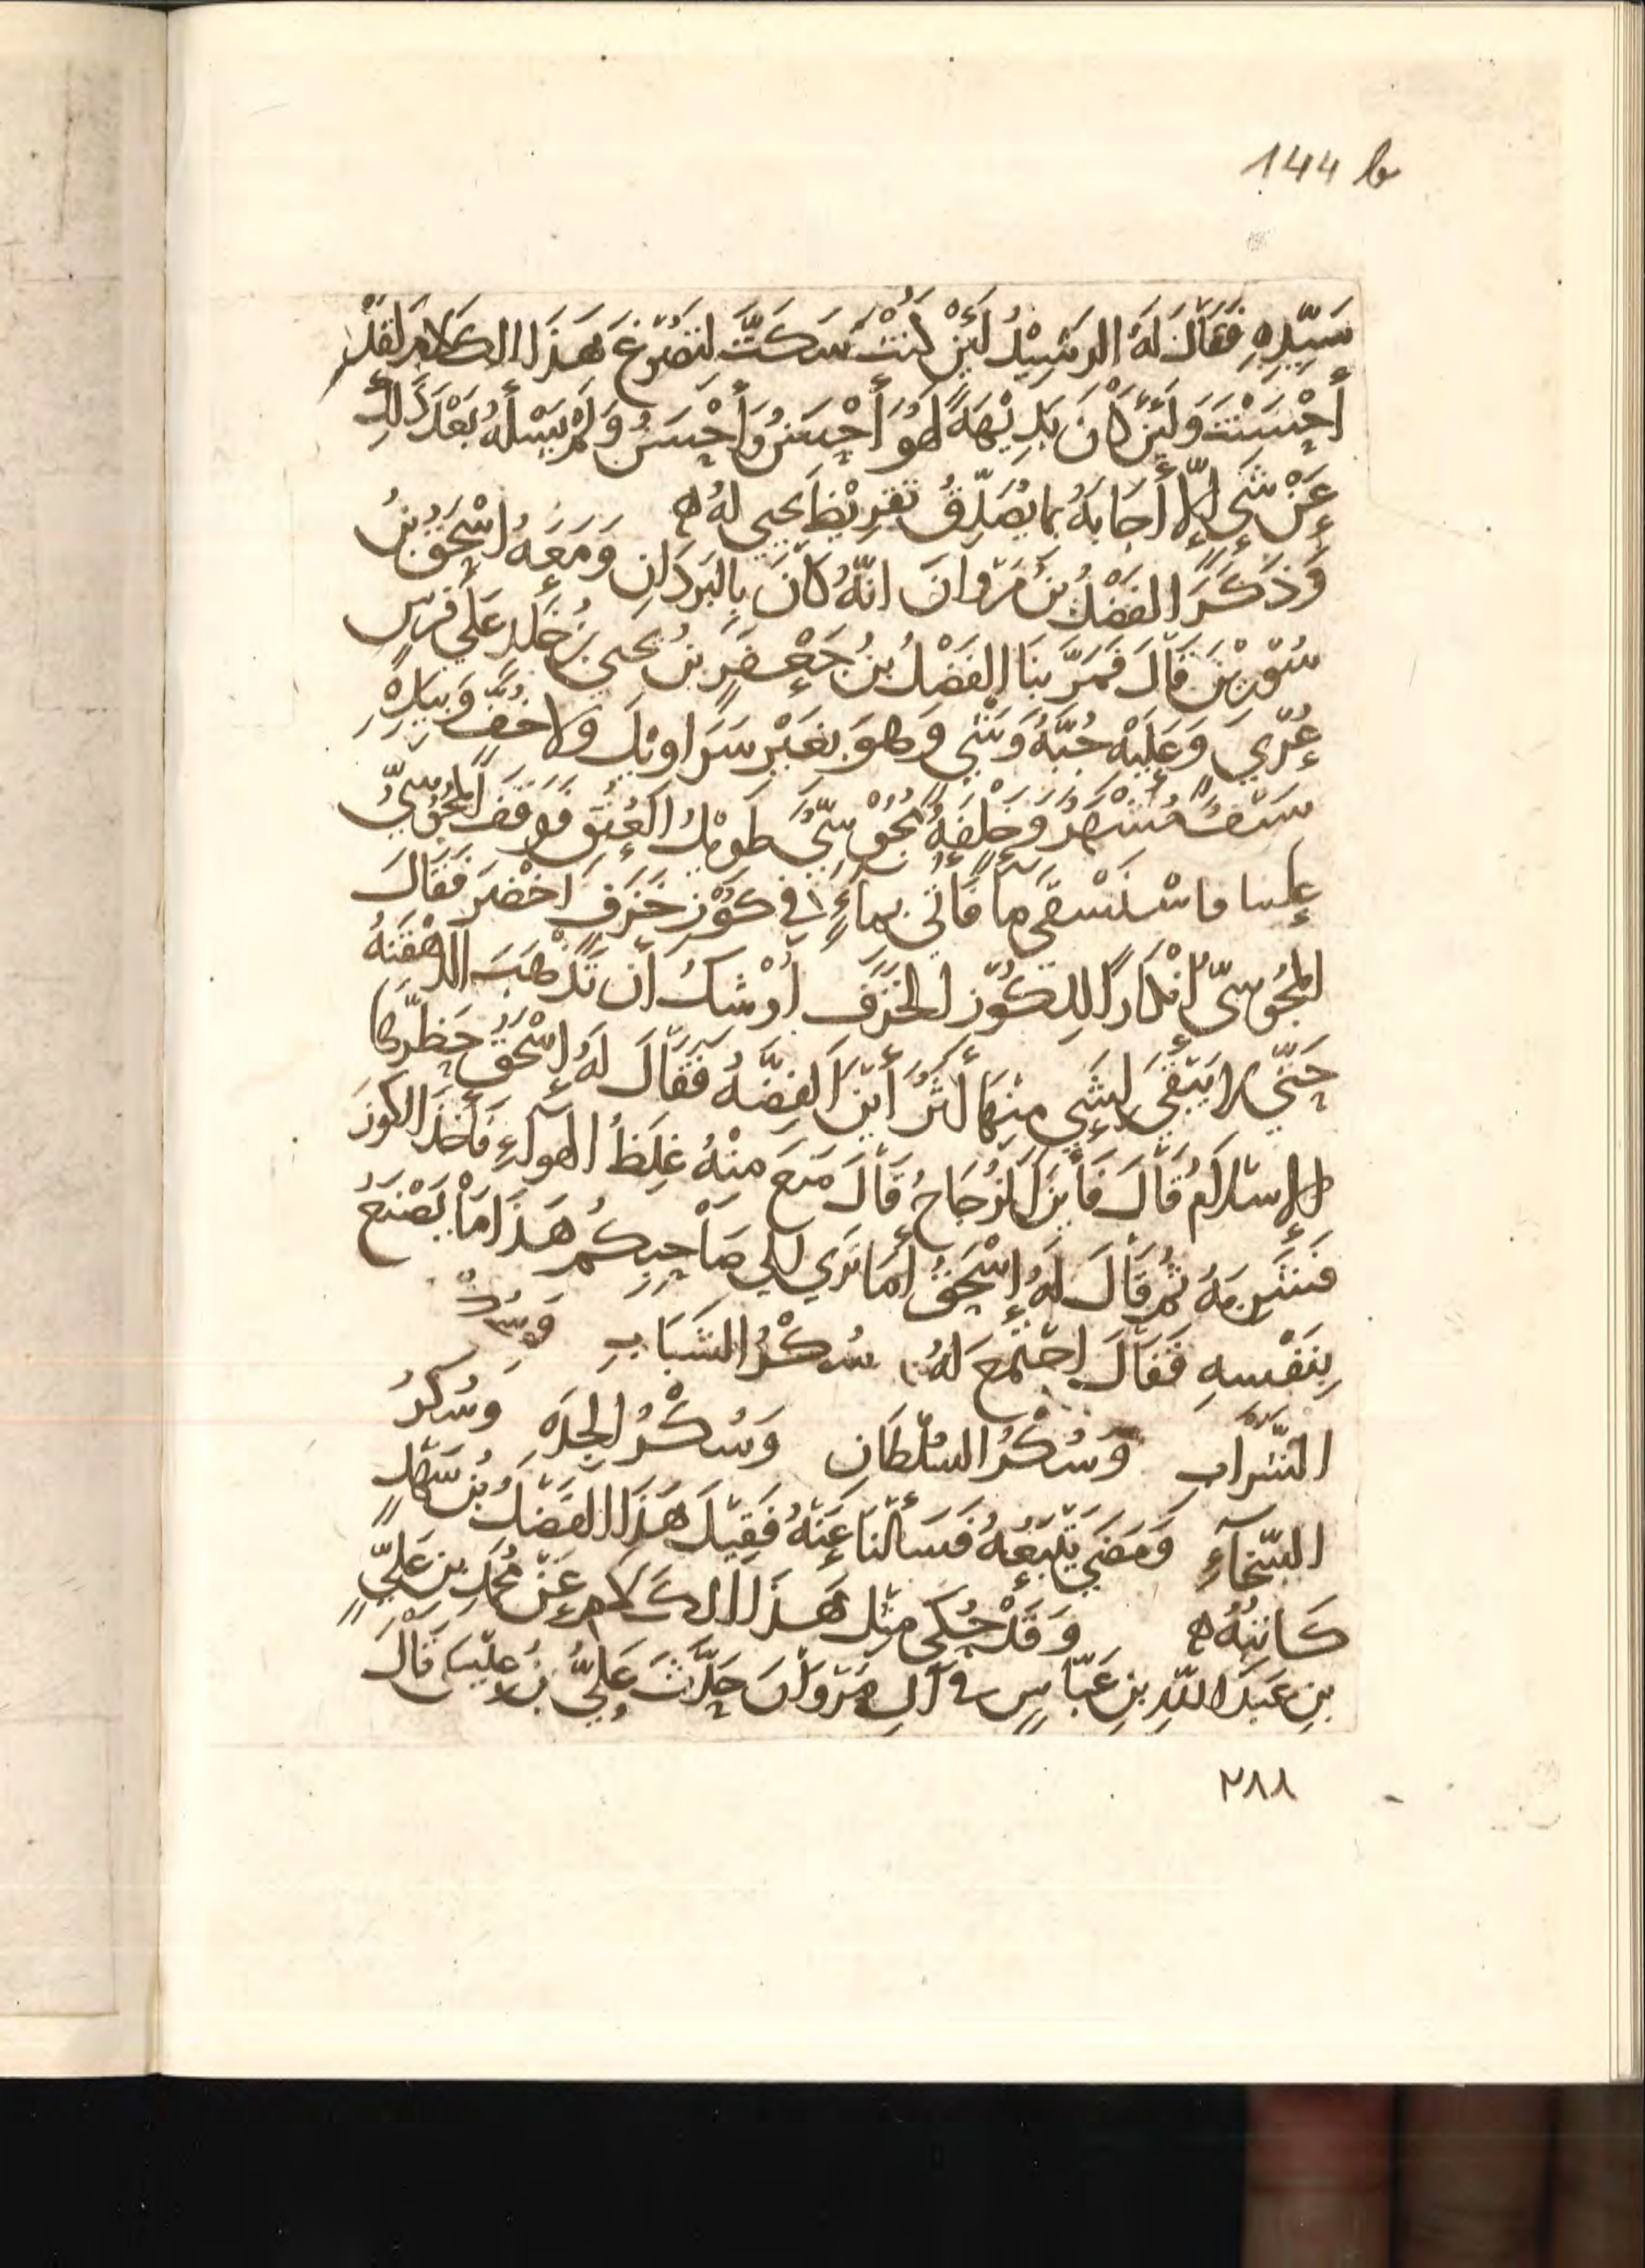 144 b
سَيِّدِهِ فَقَالَ لَهُ الرَشِيْدُ لَئِنْ كُنْتَ سَكَتَّ لِتَصُوْغَ هَذَا الكَلامَ لَقَدْ
أَحْسَنْتَ وَلَئِنْ كَانَ بَدِيْهَةً لَهُوَ أَحْسَنُ وَأَحْسَنُ وَلَمْ يَسْلْهُ بَعْدَ ذَلِكَ
عَنْ شَيءٍ إِلاَّ أَجَابَهُ بمَا يُصَدِّقُ تَقْرِيْظَ يَحيى لَهُ ه
وَذَكَرَ الفَضْلُ بنُ مَرْوانَ انَّهُ كَانَ بِالبَرَدَانِ وَمَعَهُ إِسْحَقُ بنُ
سُوْرِيْنَ قَالَ فَمَرَّ بِنَا الفَضْلُ بنُ جَعْفَرِ بنُ يحيى بنِ خَلِدٍ عَلَى فَرَسٍ
عُرْيٍ وَعَلَيْهِ جُبَّةُ وَشْيٍ وَهوَ بغَيْرِ سَرَاويْلَ وَلا خُفٍّ وَبِيَدِهِ
سَيْفٌ مُشْهَرٌ وَخَلْفَهُ مَجُوْسِيٌّ طَوِيْلُ العُنُقِ فَوَقَفَ المَجُوْسِيُّ
علينا فاسْتَسْقَى مَآ فَأتِيَ بِمَاءٍ في كُوْزِ خَزَفٍ اخْضَرَ فَقَالَ
المَجُوسِيُّ انْكَارًا لِلكُوْزِ الخَزَفِ أَوْشَكَ أن تَذْهَبَ الدَهْقَنَةُ
حَتَّى لا يَبْقَى لِشَيءٍ مِنْهَا أَثَرٌ أَيْنَ الفِضَّةُ فَقَالَ لَهُ إِسْحَقُ حَظَرَهَا
الإِسْلامُ قَالَ فَأَيْنَ الزُجَاجُ قَالَ مَنَعَ مِنْهُ غِلَظُ الهَوآءِ فَأَخَذَ الكُوزَ
فَشَرِبَهُ ثُمَ قَالَ لَهُ إِسْحَقُ أَمَا تَرَى إلى صَاحِبِكُم هَذَا مَا يَصْنَعُ
بِنَفْسِهِ فَقَالَ اجْتَمَعَ لَهُ سُكْرُ الشَبَابِ وَسُكْرُ
الشَّرَابِ وَسُكْرُ السُلْطَانِ وَسُكْرُ الجِدَةِ وَسُكْرُ
السَّخَآءِ وَمَضَى يَتْبَعُهُ فَسَأَلْنَا عَنْهُ فَقِيْلَ هَذَا الفَضْلُ بنُ سَهْلٍ
كَاتِبُهُ ه وَقَدْ حُكَي مِثْل هَذَا الكَلامِ عَنْ مُحَمَدِ بنِ عَلِيِّ
بنِ عَبْدِ اللهِ بنِ عَبَّاسٍ في آلِ مَرْوَانَ حَدَّثَ عَلِيُّ بنُ عِيْسَى قَالَ
٢٨٨